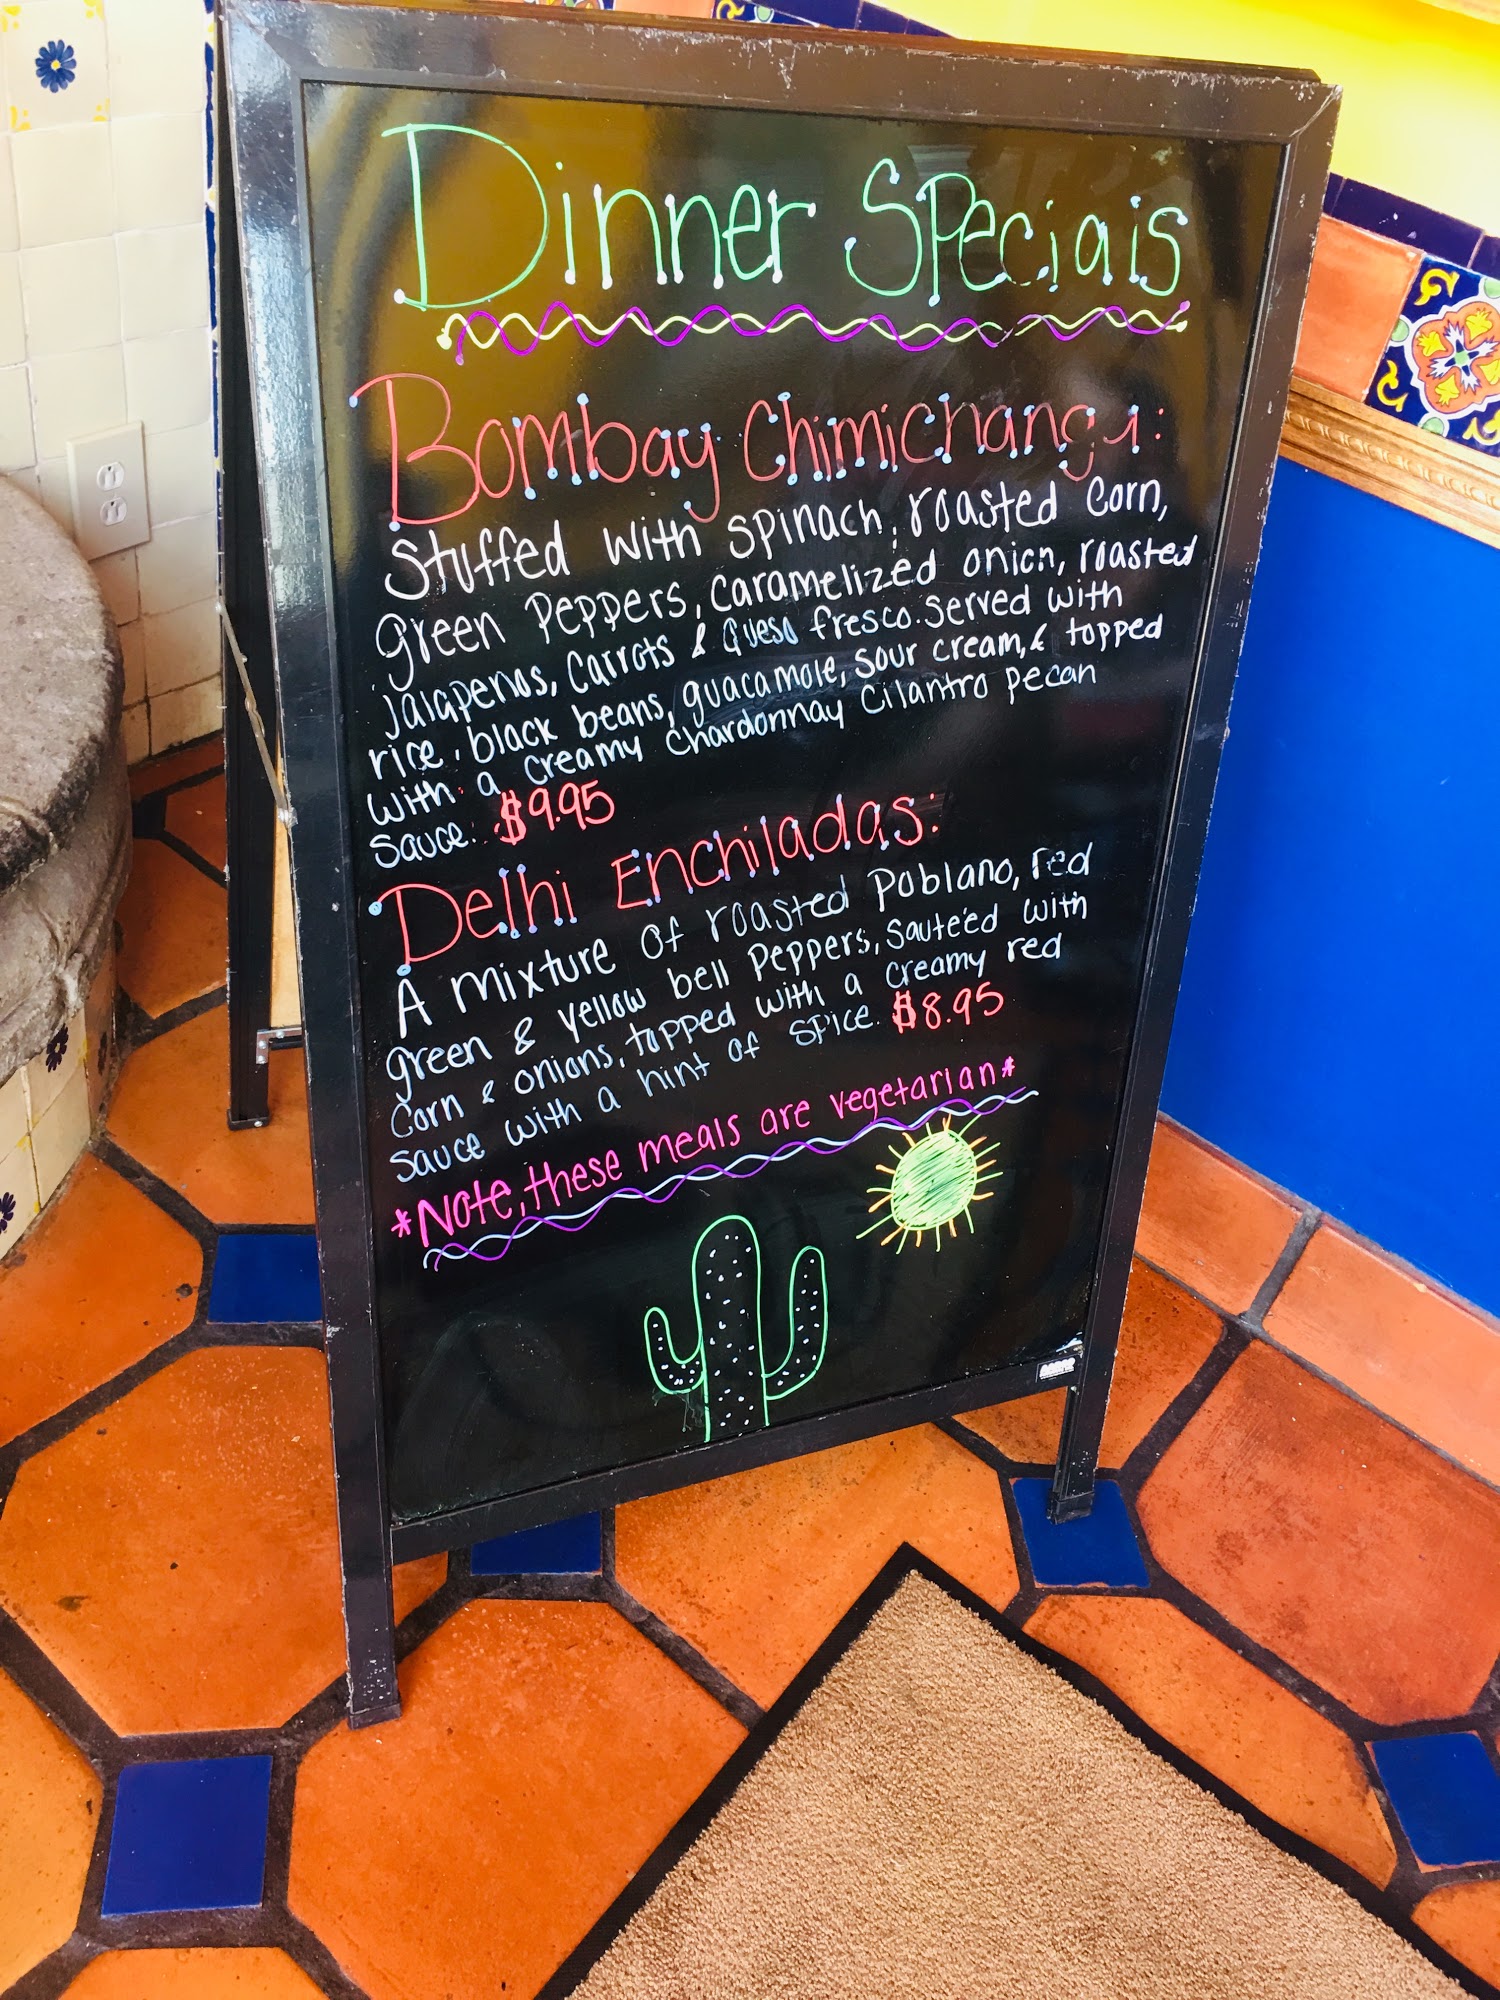 Dinner Specials
Bombay Chimichanga:
Stuffed with spinach, roasted corn,
green peppers, caramelized onion, roasted
jalapenos, carrots & queso fresco. served with
rice, black beans, guacamole, sour cream, & topped
with a creamy chardonnay cilantro pecan
sauce. $9.95
Delhi Enchiladas:
A mixture of roasted poblano, red
green & yellow bell peppers, sauteéd with
corn & onions, topped with a creamy red
sauce with a hint of spice. $8.95
*Note, these meals are vegetarian*